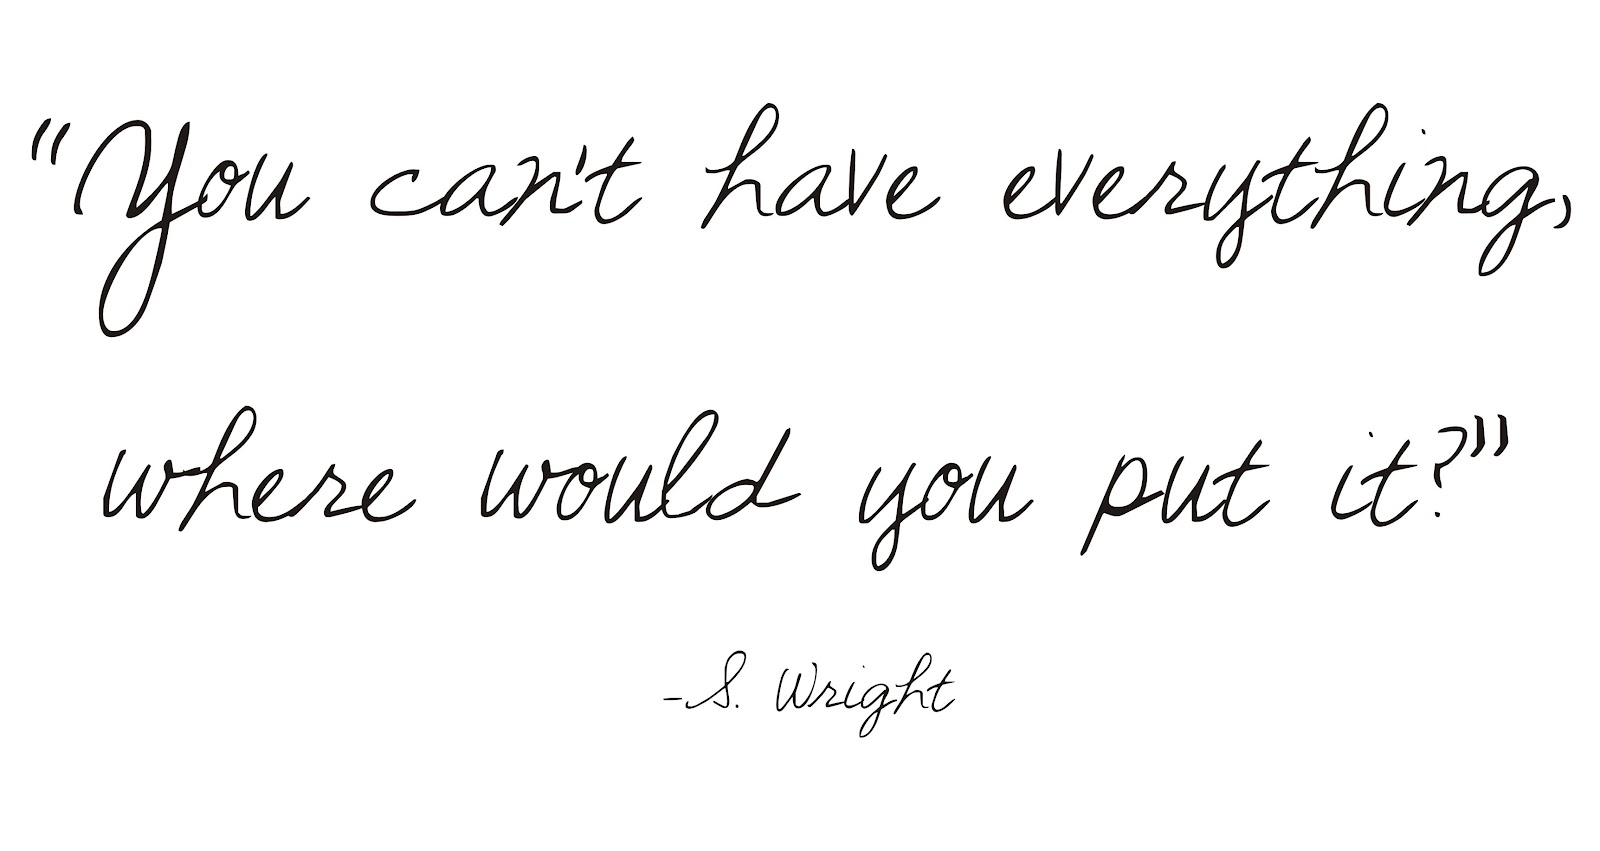 "You can't have everything,
where would you put it?"
-S. Wright